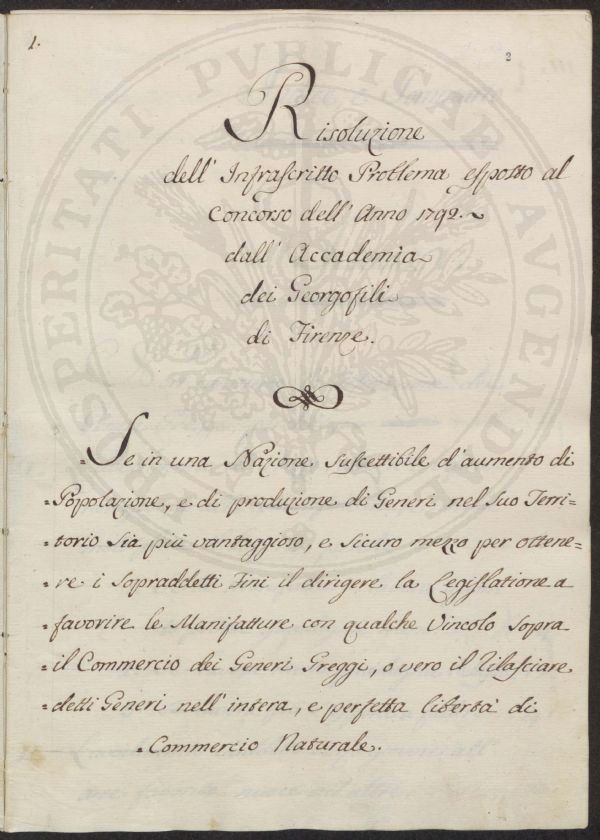 1.
2
Risoluzione
dell' Infrascritto Problema esposto al
Concorso dell' Anno 1792.
dall' Accademia
dei Georgofili
di Firenze.
Se in una Nazione suscettibile d'aumento di
Popolazione, e di produzione di Generi nel Suo Terri=
torio Sia più vantaggioso, e Sicuro mezzo per ottene=
re i Sopraddetti Fini il dirigere la Legislatione a
favorire le Manifatture con qualche Vincolo Sopra
il Commercio dei Generi Greggi, o vero il Rilasciare
detti Generi nell' intera, e perfetta libertà di
Commercio Naturale.
PROSPERITATI PUBLICAE AUGENDAE